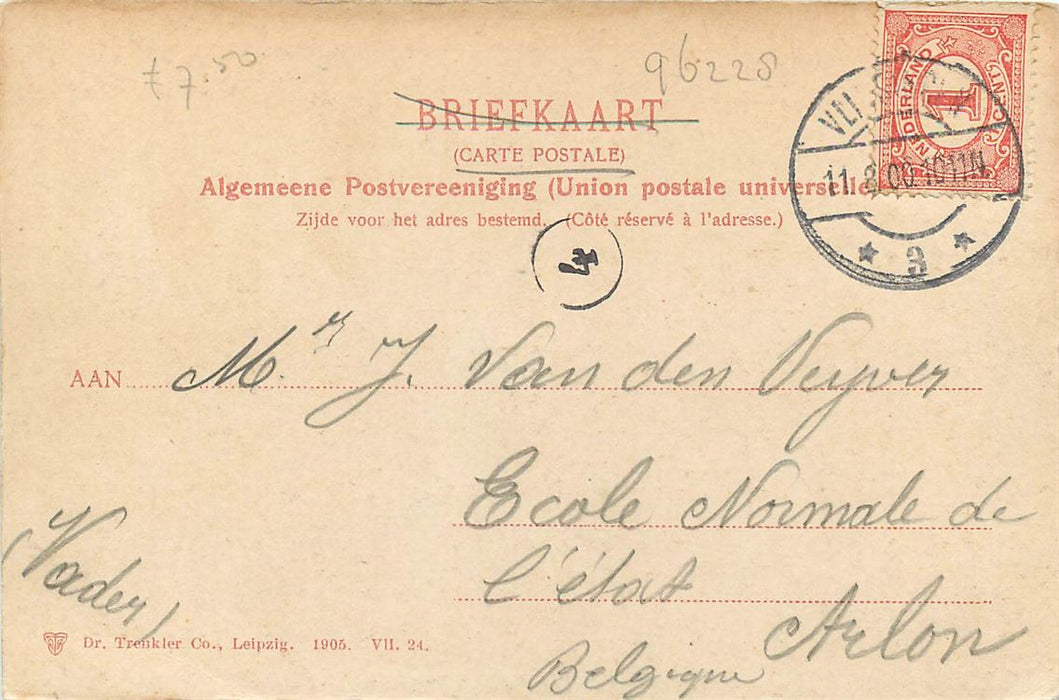 £ 7.50
96228
BRIEFKAART
(CARTE POSTALE)
Algemeene Postvereeniging (Union postale universelle
Zijde voor het adres bestemd. (Côté réservé à l'adresse.)
NEDERLAND
1
CENT
11. 8 06 10 11N
3
4
AAN Mr J. Van den Vyver
Ecole Normale de
l'état
Arlon
Belgique
(Vader)
Dr. Trenkler Co., Leipzig. 1905. VII. 24.